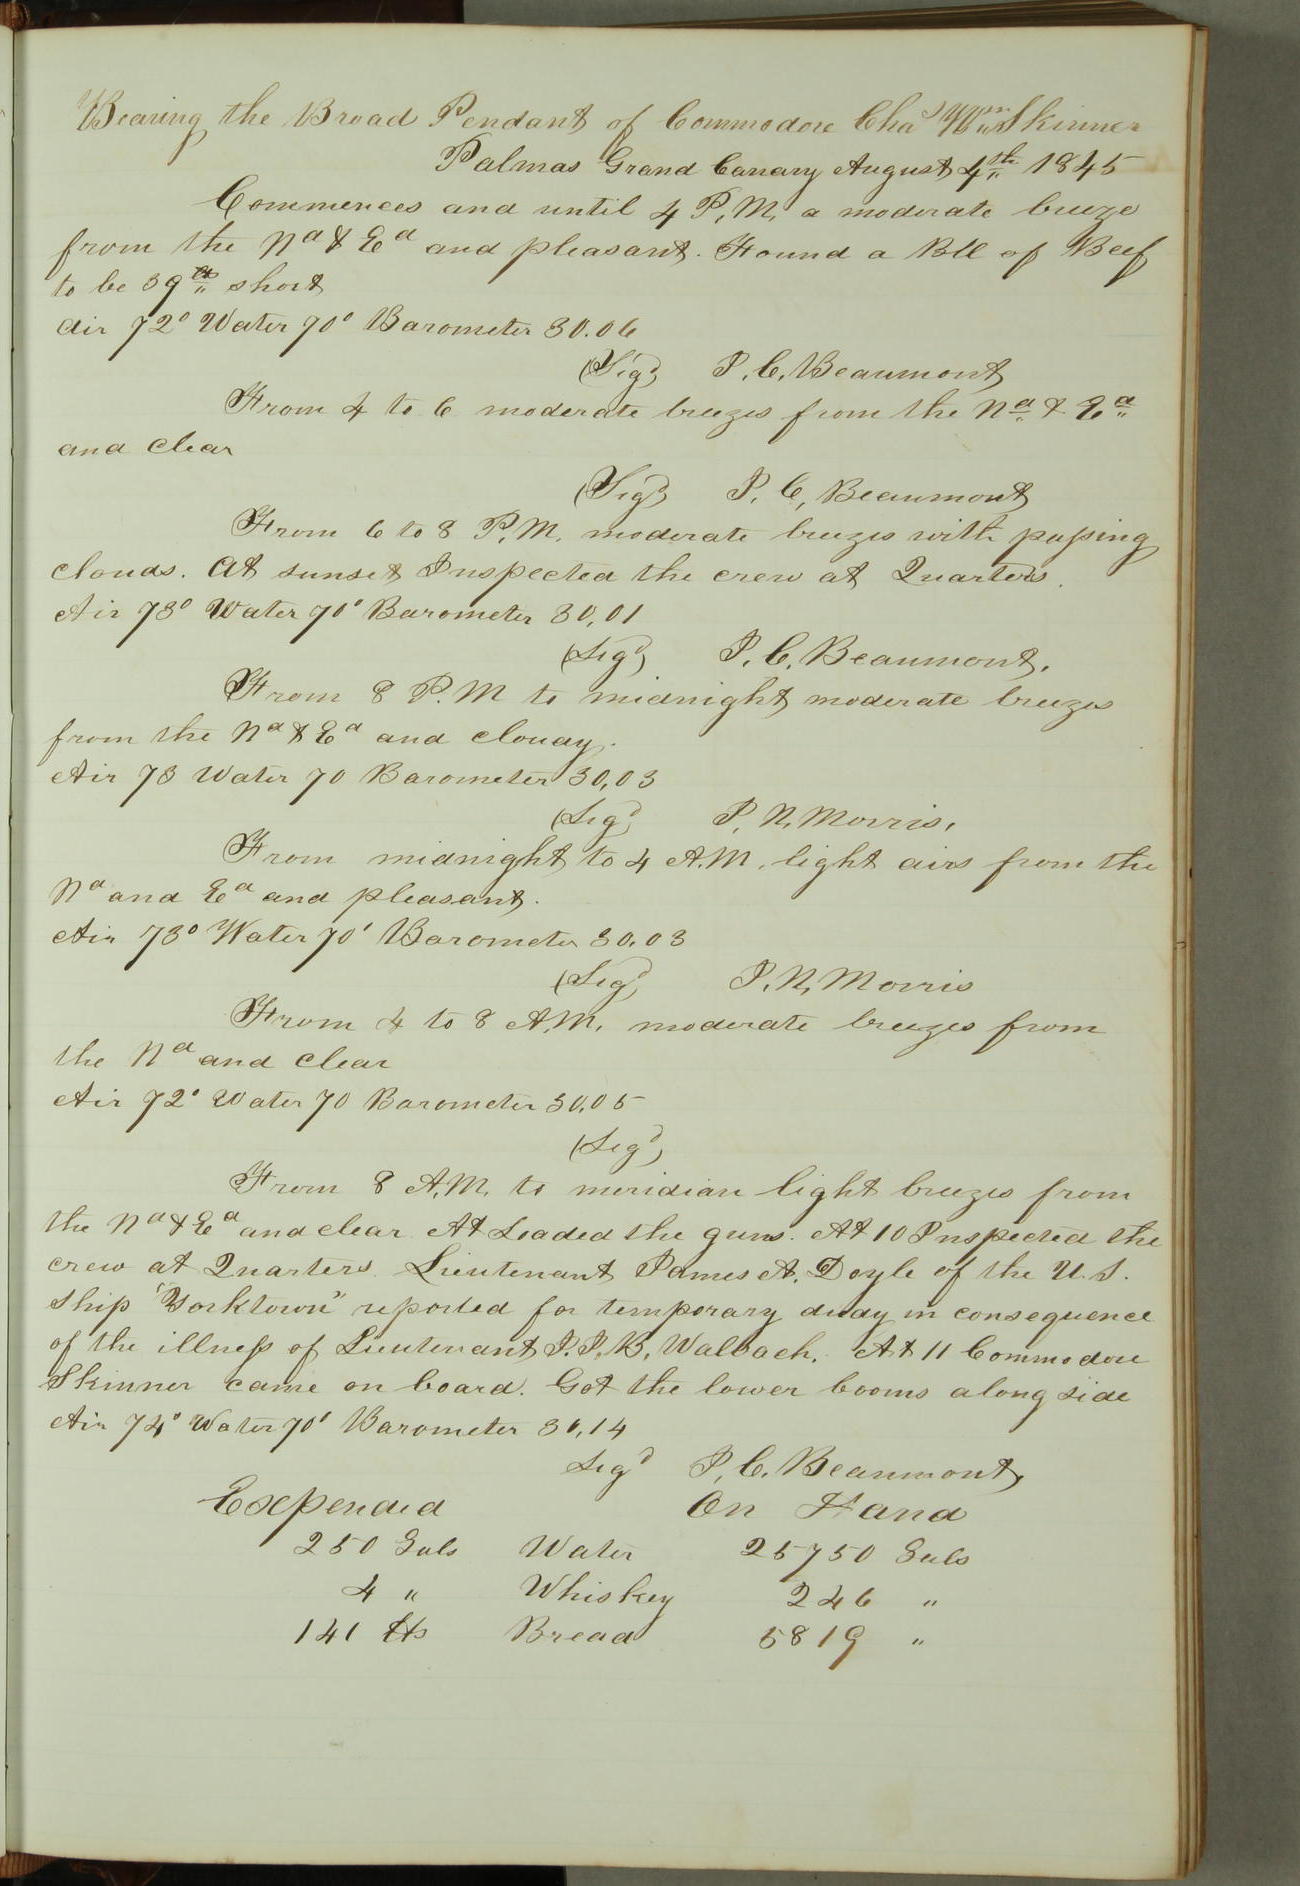 Bearing the Broad Pendant of Commodore Chas Wm Skinner
Palmas Grand Canary August 4th 1845
Commences and until 4 P.M. a moderate breeze
from the Nd & Ed and pleasant. Found a Bll of Beef
to be 39 lbs short
Air 72° Water 70° Barometer 30.06
(Sigd) J. C. Beaumont
From 4 to 6 moderate breezes from the Nd & Ed
and clear
(Sigd) J. C. Beaumont
From 6 to 8 P.M. moderate breezes with passing
clouds. At sunset Inspected the crew at Quarters.
Air 73° Water 70° Barometer 30,01
(Sigd) J. C. Beaumont.
From 8 P.M to midnight moderate breezes
from the Nd & Ed and cloudy.
Air 73 Water 70 Barometer 30,03
(Sigd) J. N. Morris.
From midnight to 4 A.M. light airs from the
Nd and Ed and pleasant.
Air 73° Water 70° Barometer 30.03
(Sigd) J. N. Morris
From 4 to 8 A.M. moderate breezes from
the Nd and clear
Air 72° Water 70 Barometer 30.05
(Sigd)
From 8 A.M. to meridian light breezes from
the Nd & Ed and clear At Loaded the guns. At 10 Inspected the
crew at Quarters. Lieutenant James A. Doyle of the U.S.
Ship "Yorktown" reported for temporary duty in consequence
of the illness of Lieutenant J. J. B. Walbach. At 11 Commodore
Skinner came on board. Got the lower booms along side
Air 74° Water 70° Barometer 30,14
Sigd J. C. Beaumont
Expended On Hand
250 Gals Water 25750 Gals
4 " Whiskey 246 "
141 lbs Bread 5819 "